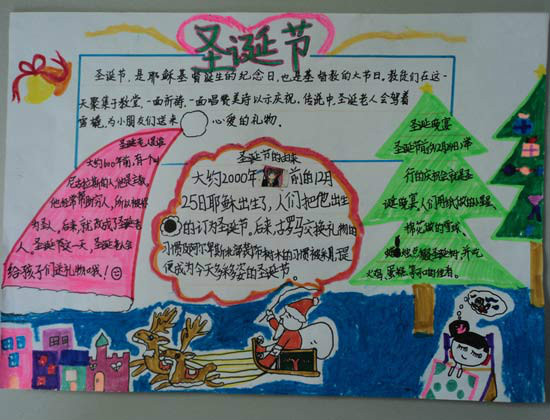 圣诞节
圣诞节,是耶稣基督诞生的纪念日,也是基督教的大节日。教徒们在这一
天聚集于教堂,一面祈祷,一面唱赞美诗以示庆祝。传说中,圣诞老人会驾着
雪橇,为小朋友们送来 心爱的礼物。
圣诞老人
大约 年前,有个叫
尼古拉斯的人,他是主教,
他经常帮助穷人,所以被称
为圣人,后来,就改成了圣诞老
人。圣诞节这一天,圣诞老人会
给孩子们送礼物哦!
圣诞节的由来
大约2000年 前的12月
25日耶稣出生了,人们把他出生
的 订为圣诞节。后来,于罗马交换礼物的
习惯及 树木的习惯被采用,使
成为今天多姿多彩的圣诞节。
圣诞晚宴
圣诞节前 月 日,举
行的庆祝会就是圣
诞晚宴,人们用
棉花做的雪球、
点 圣诞树,并吃
火鸡、蛋糕、